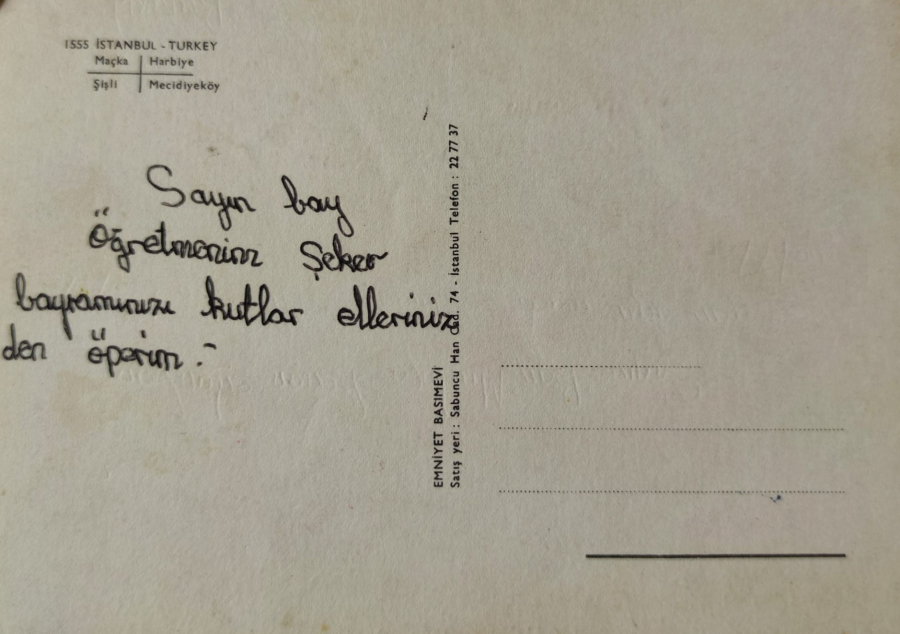 1555 İSTANBUL - TURKEY
Maçka | Harbiye
Şişli | Mecidiyeköy
Sayın bay
Öğretmenim Şeker
bayramınızı kutlar elleriniz
den öperim.-
EMNİYET BASIMEVİ
Satış yeri : Sabuncu Han Cad. 74 - İstanbul Telefon : 22 77 37